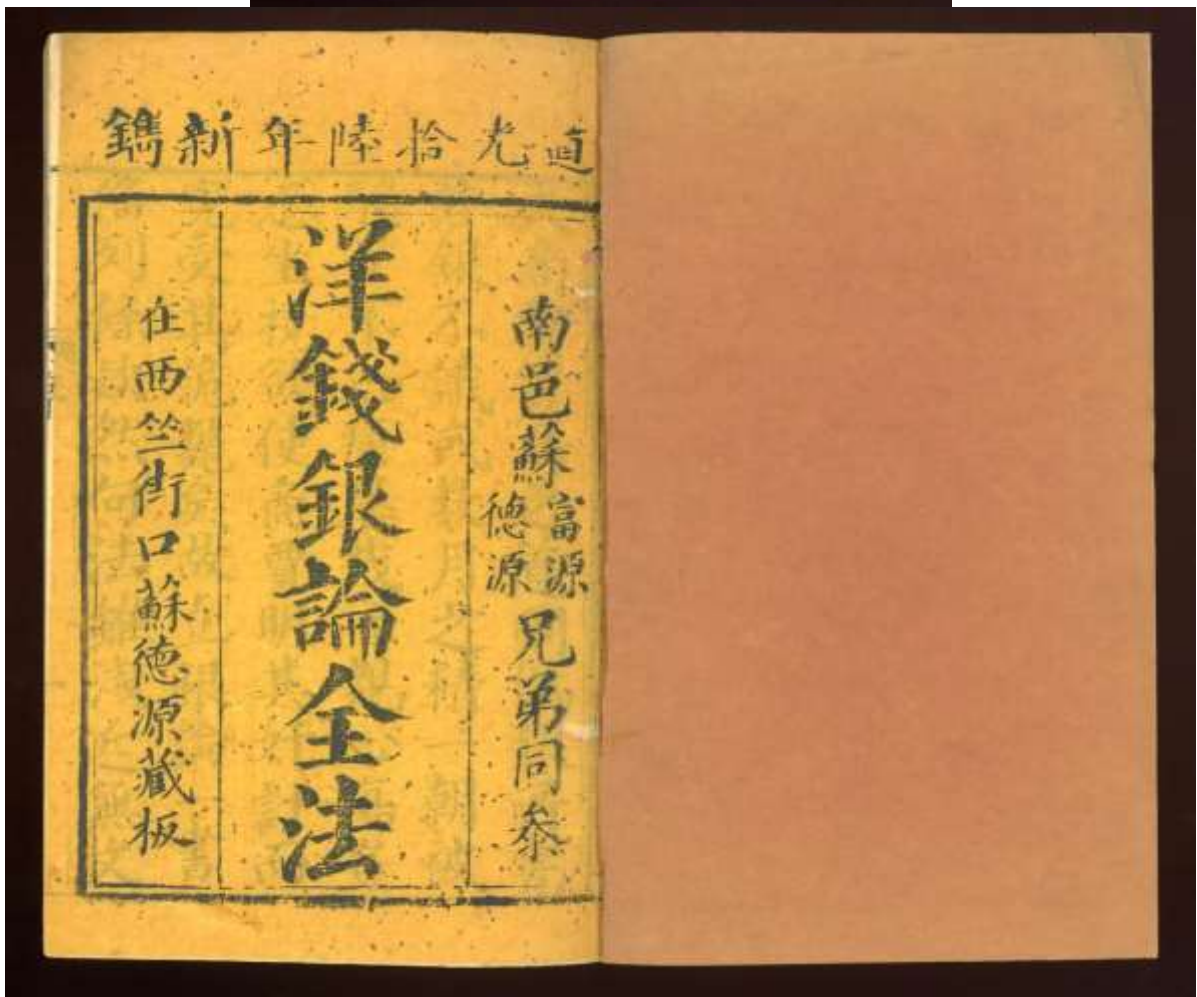 道光拾陸年新鐫
南邑蘇富源德源兄弟同叅
洋錢銀論全法
在西竺街口蘇德源藏板